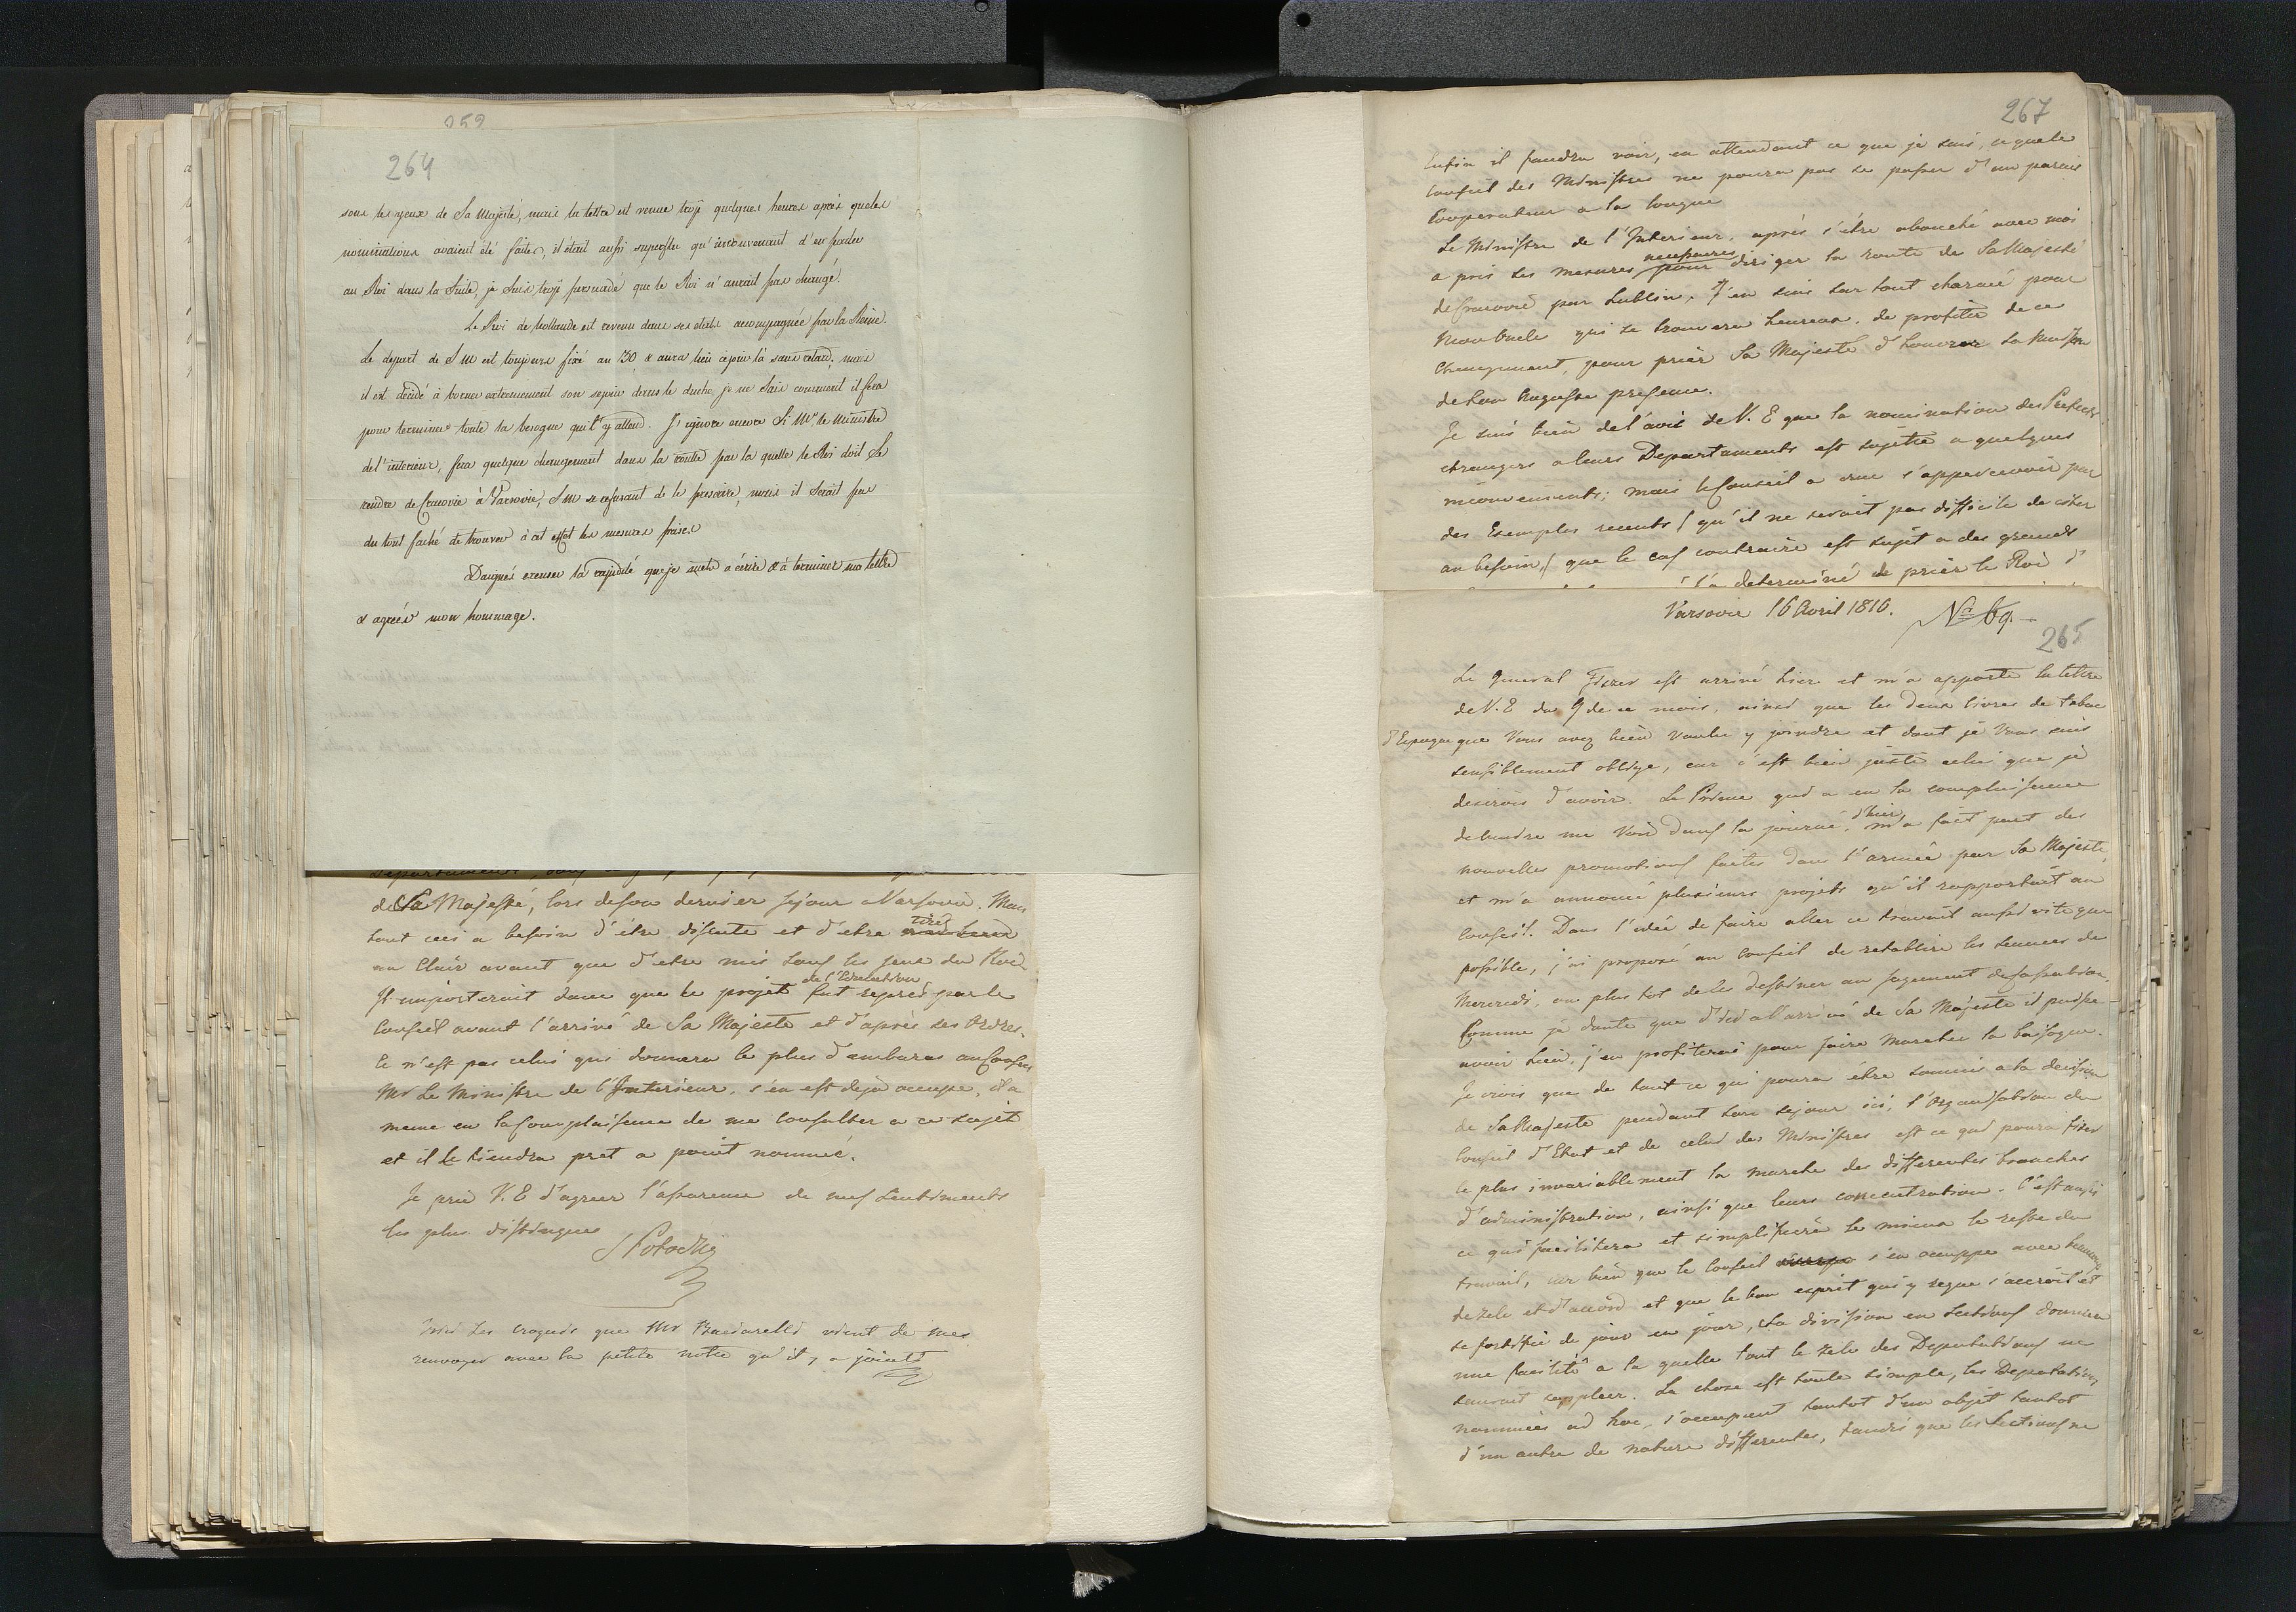 259
264
sous les yeux de Sa Majesté, mais la lettre est venue trop quelques heures après que les
nominations avaient été faites, il était aussi superflu qu'inconvenant d'en parler
au Roi dans la suite, je suis trop persuadé que le Roi n'aurait pas changé.
Le Roi de hollande est revenu dans ses etats accompagnée par la Reine.
Le depart de S M est toujours fixé au 30, & aura lieu ce jour là sans retard, mais
il est décidé à borner extremement son sejour dans le duché, je ne sais comment il fera
pour terminer toute la besogne qui l'y attend. J'ignore encore si Mr. le Ministre
de l'interieur, fera quelque changement dans la route par la quelle le Roi doit se
rendre de Cracovie à Varsovie, S M se refusant de le prescrire, mais il serait pas
du tout faché de trouver à cet effet les mesures prises
Daignés excuser la rapidité que je mets a écrire & à terminer ma lettre
& agréer mon hommage.
de Sa Majesté, lors de son dernier séjour a Varsovie. Mais
tout ceci a besoin d'être discuté et d'etre tiré
au Clair avant que d'etre mis sous les yeux du Roi
Il importerait donc que le projet de l'Education fut repris par le
Conseil avant l'arrivé de Sa Majesté et d'après ses Ordres.
Ce n'est pas celui qui donnera le plus d'embaras au Conseil
Mr Le Ministre de l'Interieur, s'en est deja occupé, il a
meme eu la complaisence de me consulter a ce sujet
et il le tiendra pret a point nommé.
Je prie V. E d'agreer l'assurence de mes sentiments
les plus distingues
SPotocki
Voici les croquis que Mr Bacciarelli vient de me
renvoyer avec la petite notte qu'il y a joint
267
Enfin il faudra voir, en attendant ce que je sais, c'que le
Conseil des Ministres ne poura pas se passer d'un pareil
Cooperateur a la longue
Le Ministre de l'Interieur, après s'être abouché avec moi
a pris les mesures necessaires pour diriger la route de Sa Majesté
de Cracovie par Lublin. J'en suis surtout charmé pour
mon Oncle qui se trouvera heureux, de profiter de ce
changement, pour prier Sa Majesté d'honorer sa Maison
de son Auguste presence.
Je suis bien de l'avis de V. E que la nomination des Prefects
etrangers a leurs Departaments est sujette a quelques
inconvenients; mais le Conseil a crue s'appercevoir par
des Exemples recents (qu'il ne serait pas difficile de citer
au besoin,) que le cas contraire est sujet a des grands
l'a determiné de prier le Roi
Varsovie 16 Avril 1810. No 69.
265
Le General Fiszer est arrivé hier et m'a apporté la lettre
de V. E du 9 de ce mois, ainsi que les deux livres de tabac
d'Espagne que Vous avez bien voulu y joindre et dont je Vous suis
sensiblement oblige, car c'est bien juste celui que je
desirois d'avoir. Le Prince qui a eu la complaisence
de vendre me voir dans la journé d'hier, m'a fait part des
nouvelles promotions faites dans l'armée par Sa Majesté,
et m'a annoncé plusieurs projets qu'il rapportait au
Conseil. Dans l'idée de faire aller ce travail aussi vite que
possible, j'ai proposé au Conseil de retablire les seances de
Mercredi, ou plus tot de les destiner au jugement de Cassation.
Comme je doute que d'ici a l'arrivé de Sa Majesté il puisse
avoir lieu, j'en profiterai pour faire marcher la besogne.
Je crois que de tout ce qui poura être soumis a la decision
de Sa Majesté pendant son sejour ici, l'Organisation du
Conseil d'Etat et de celui des Ministres est ce qui poura fixer
le plus invariablement la marche des differentes branches
d'administration, ainsi que leurs concentration. C'est aussi
ce qui facilitera et simplifiera le mieux le reste du
travail, car bien que le Conseil s'en occuppe avec beaucoup
de zele et d'accord et que le bon esprit qui y regne s'accroit et
se fortifie de jour en jour, la division en Sections donnera
une facilité a la quelle tout le zele des Deputations ne
saurait suppleer. La chose est toute simple, les Deputations
nommées ad hoc, s'occupent tantot d'un objet tantot
d'un autre de nature differentes, tandis que les Sections ne